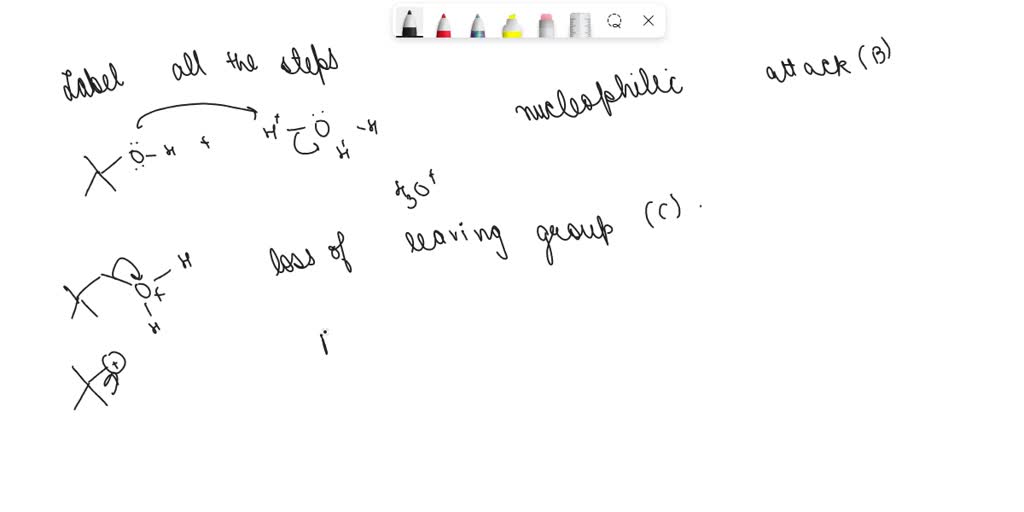 Label all the steps
nucleophilic attack (B)
Ö-H +
H-Ö-H
H
H3O+
loss of leaving group (C).
O+
H
H
+